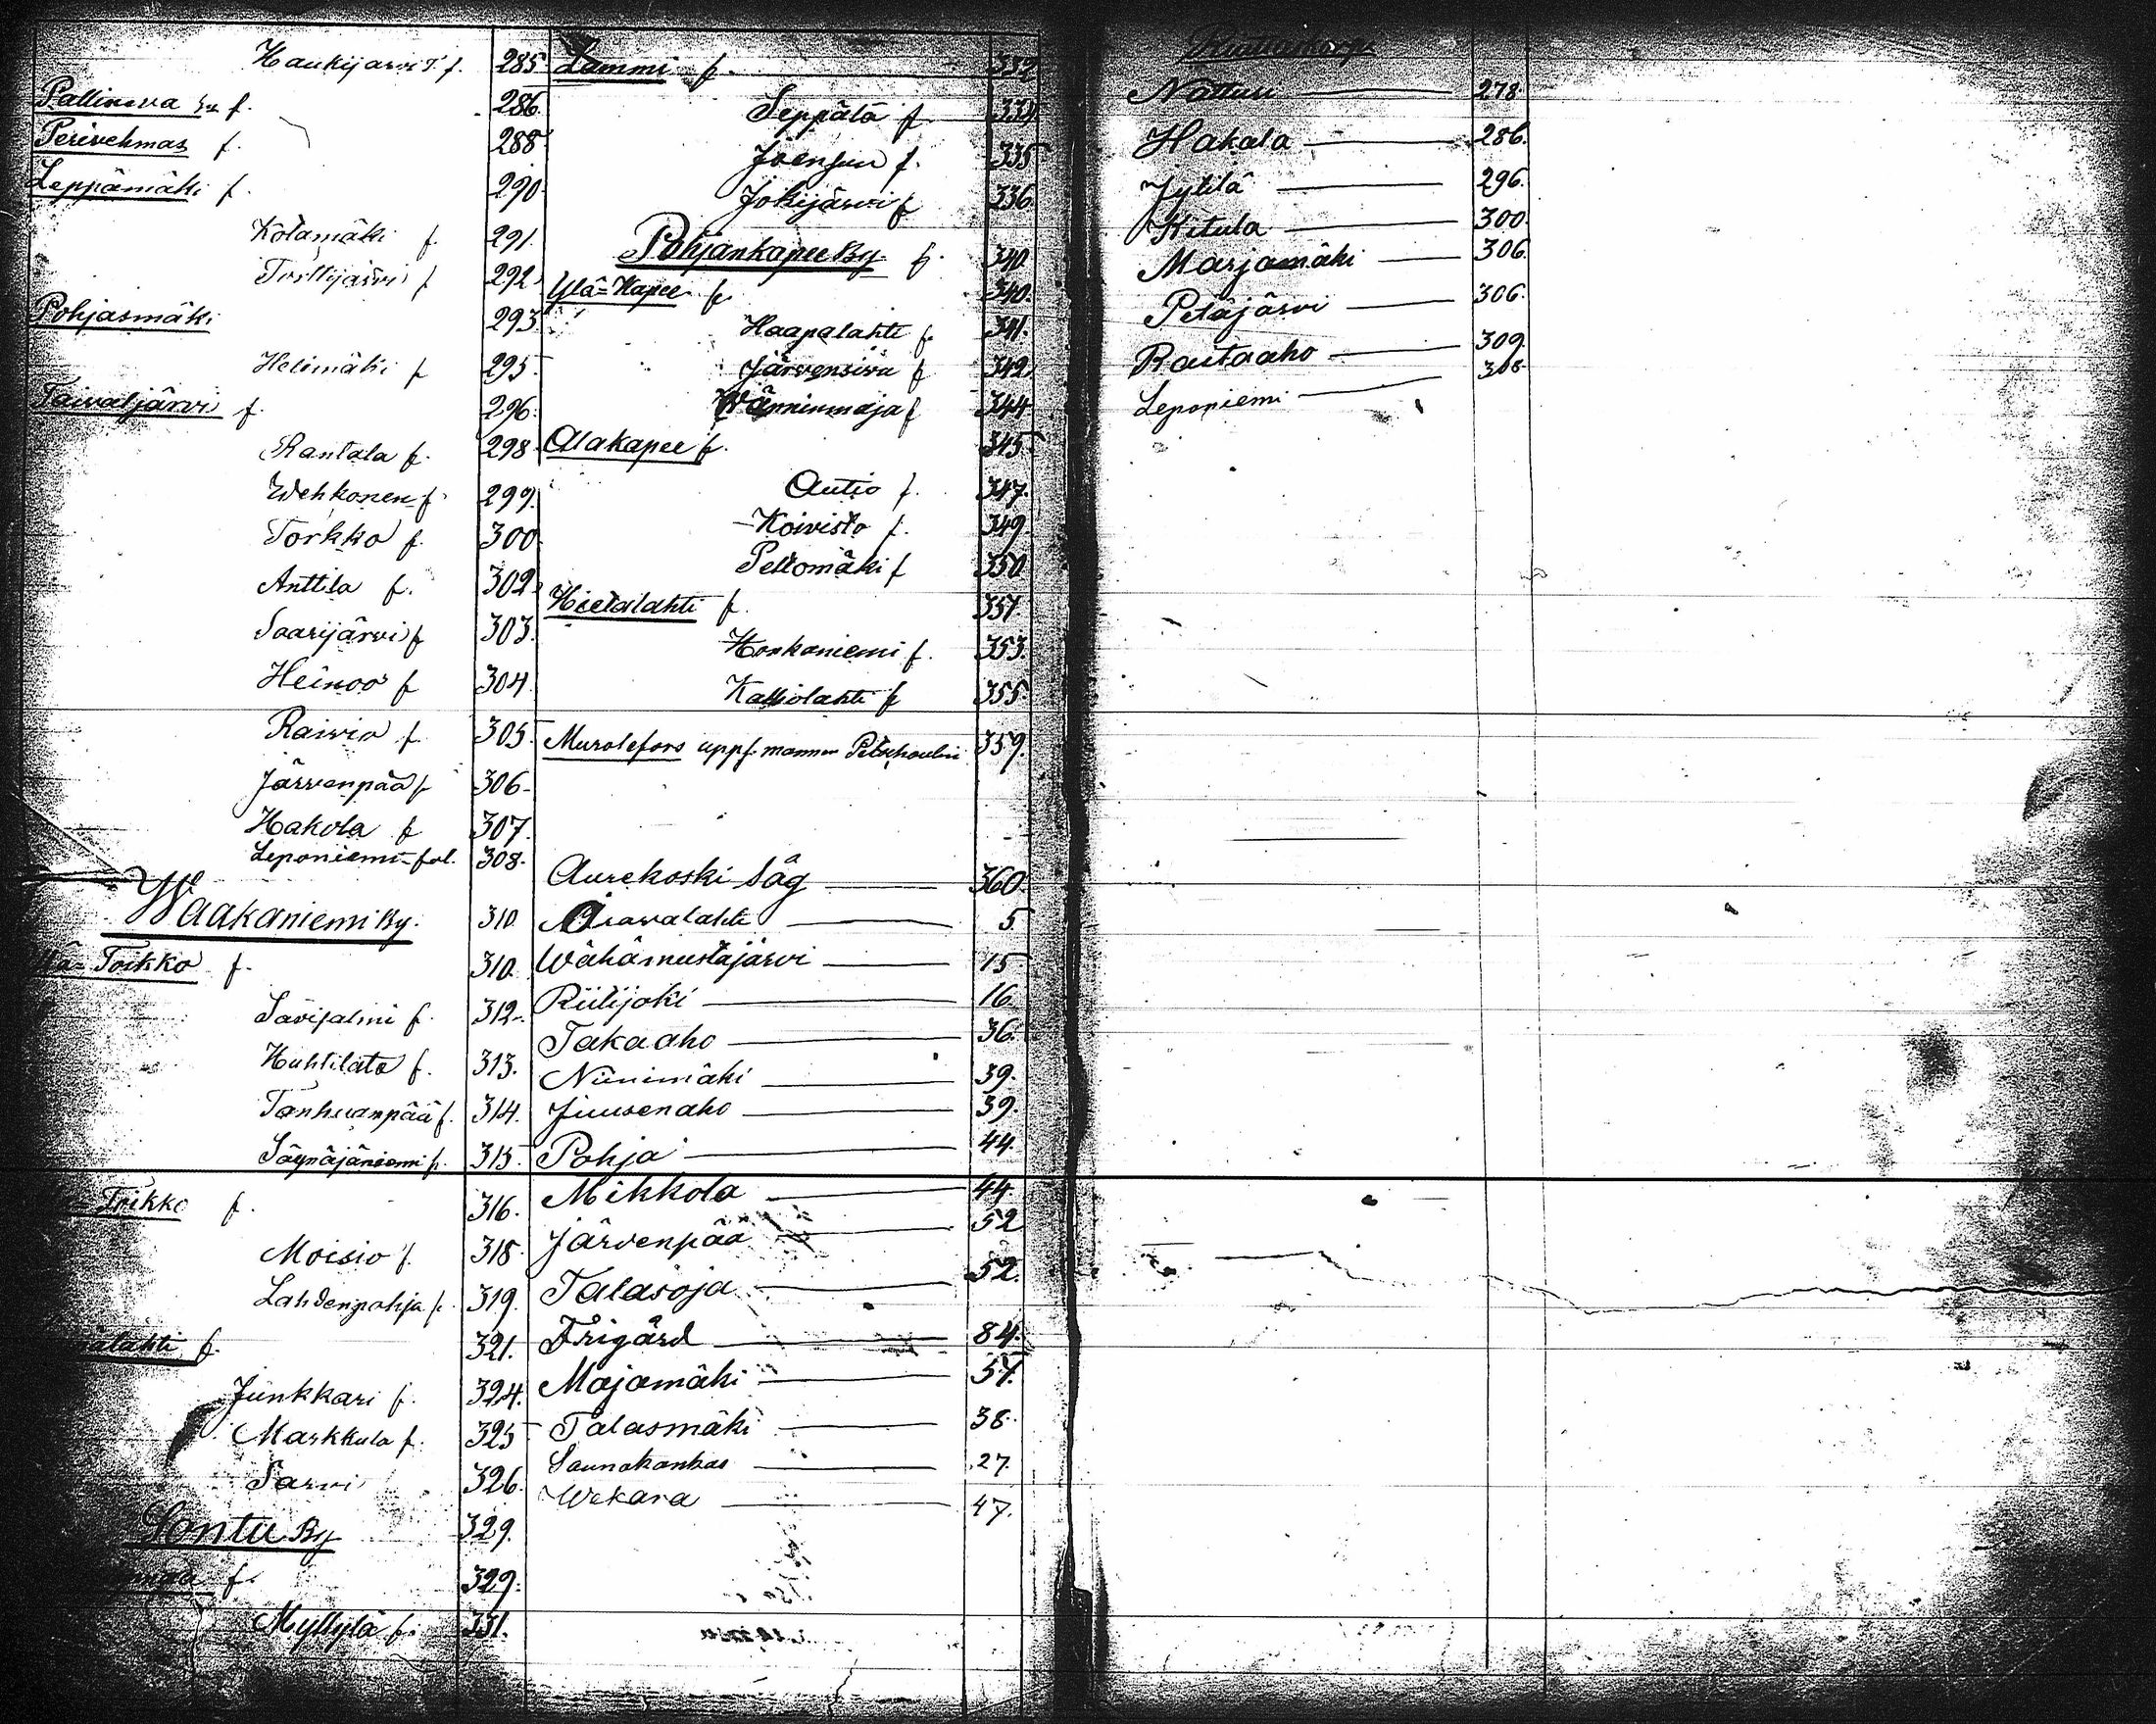 Haukijärvi T. f. 285
Pallinova f. 286.
Perivehmas f. 288
Leppämäki f. 290
Kotamäki f. 291.
Torttijärvi f 292
Pohjasmäki 293
Helimäki f 295
Taivaljärvi f. 296.
Rantala f. 298
Wehkonen f. 299.
Torkko f. 300.
Anttila f. 302
Saarijärvi f 303.
Heinoo f 304
Raivio f 305
Järvenpää f 306
Hakola f 307.
Leponiemi fol. 308.
Waakaniemi By. 310
Ylä-Toikko f. 310
Savisalmi f. 312
Huhtilato f. 313.
Tanhuanpää f. 314.
Säynäjäniemi f. 315
Toikko f. 316.
Moisio f. 318
Lahdenpohja f. 319.
f. 321.
Junkkari f. 324.
Markkula f. 325
Sarvi 326.
Sontu By 329.
f. 329.
Myllylä f. 331.
Lammi f. 332
Seppälä f 334
Joensuu f. 335
Jokijärvi f 336
Pohjankapee By. f. 340.
Ylä-Kapee f. 340.
Haapalahti f. 341.
Järvensivu f 342
Wänninmaja f 344
Alakapee f. 345
Autio f. 347.
Koivisto f. 349
Peltomäki f 350
Hietalahti f. 351.
Honkaniemi f. 353.
Kalliolahti f 355
Murolefors uppf. 359.
Aurekoski såg 360.
Aravalahti 5
Wähämustajärvi 15
Riitijoki 16.
Takaaho 36.
Niinimäki 39.
Jiuusenaho 39.
Pohja 44.
Mikkola 44
Järvenpää 52
Talasoja 52.
Frigård 84.
Majamäki 57.
Talasmäki 38.
Saunakankas 27.
Wekara 47.
Nattusi 278
Hakala 286.
Jylilä 296.
Kitula 300.
Marjamäki 306.
Petäjärvi 306.
Rautaaho 309.
Leponiemi 308.